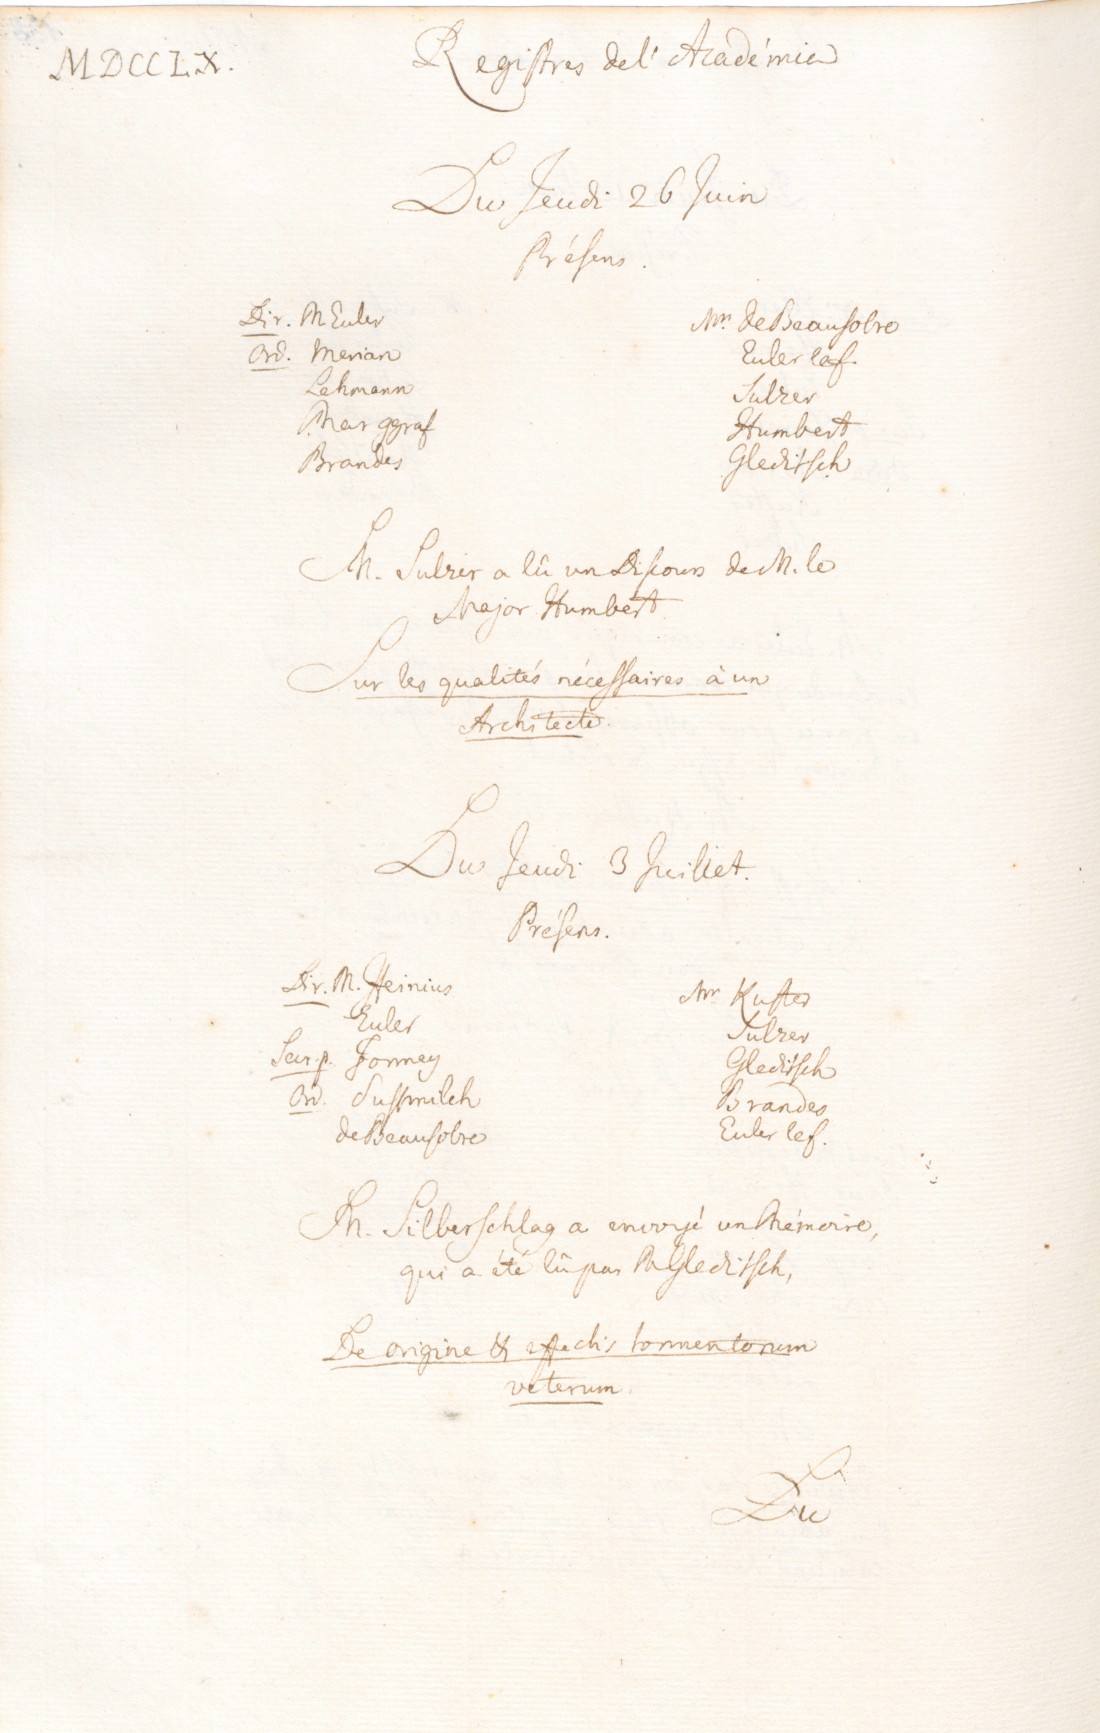 MDCCLX.
Registres de l'Académie
Du Jeudi 26 Juin
Présens.
Dir. M Euler
Ord. Merian
Lehmann
Marggraf
Brandes
Mrs de Beausobre
Euler le f.
Sulzer
Humbert
Gleditsch
M. Sulzer a lû un Discours de M. le
Major Humbert
Sur les qualités nécessaires à un
Architecte.
Du Jeudi 3 Juillet.
Présens.
Dir. M. Heinius
Euler
Secr. p. Formey
Ord. Sussmilch
de Beausobre
Mrs Kuster
Sulzer
Gleditsch
Brandes
Euler le f.
M. Silberschlag a envoyé un Mémoire,
qui a été lû par M Gleditsch,
De origine & effectis tormentorum
veterum.
Du